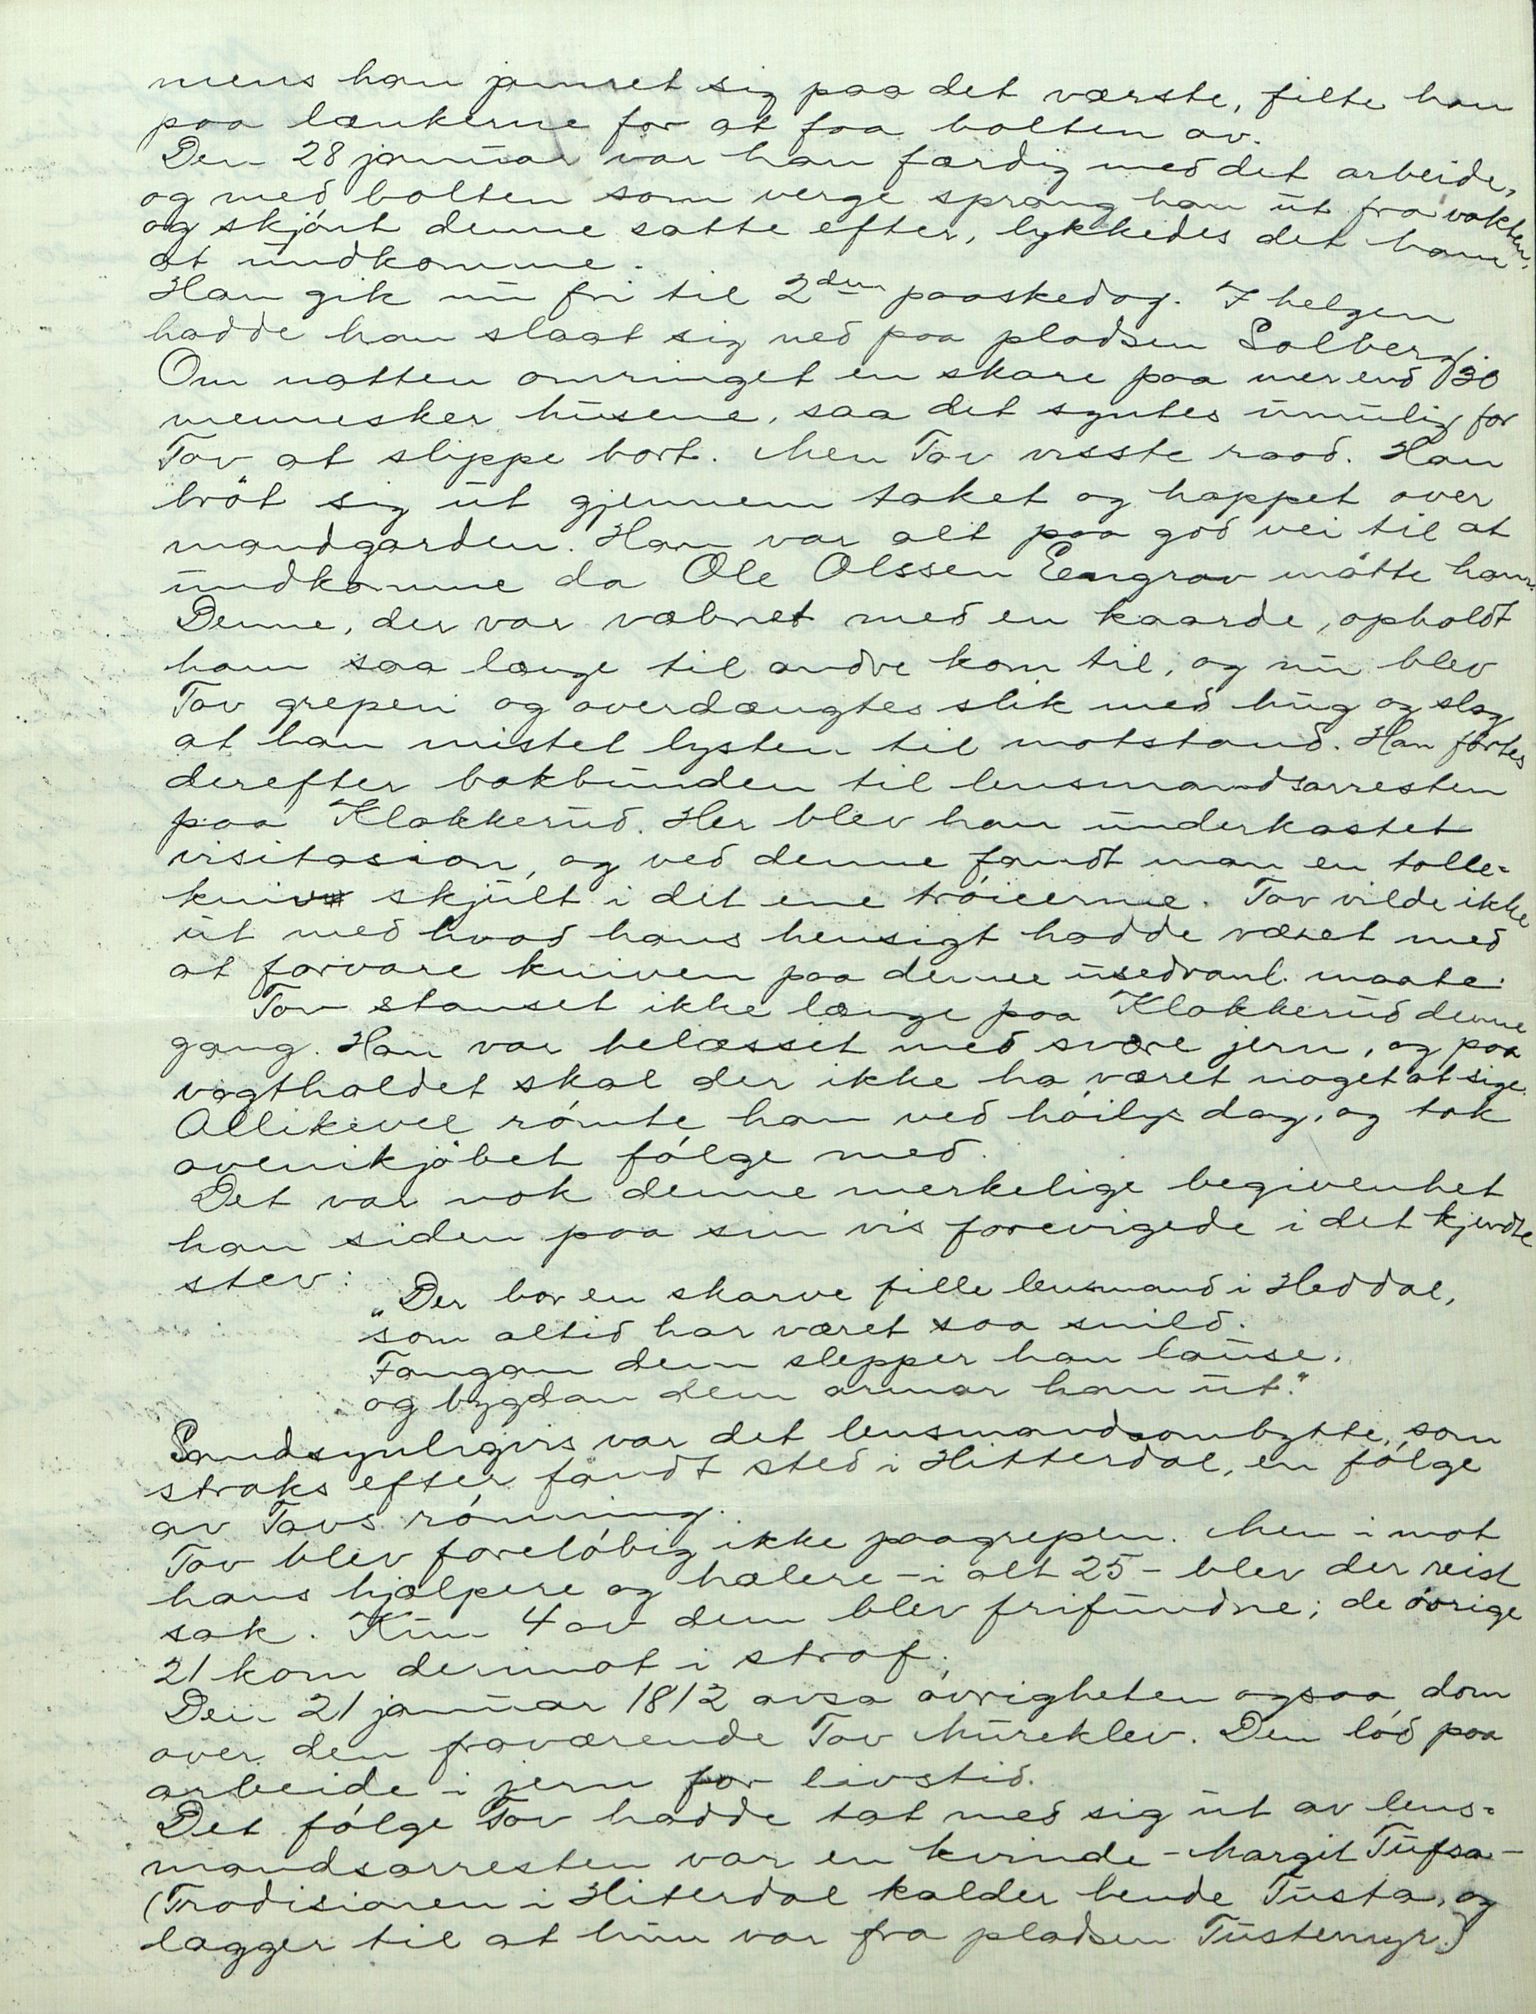 mens han jamret sig paa det værste, filte han
paa lænkerne for at faa bolten av.
Den 28 januar var han færdig med det arbeide,
og med bolten som verge sprang han ut fra vakten,
og skjönt denne satte efter, lykkedes det ham
at undkomme.
Han gik nu fri til 2den paaskedag. I helgen
hadde han slaat sig ned paa pladsen Solberg.
Om natten omringet en skare paa mer end 30
mennesker husene, saa det syntes umulig for
Tov at slippe bort. Men Tov visste raad. Han
bröt sig ut gjennem taket og hoppet over
mandgarden. Han var alt paa god vei til at
undkomme da Ole Olssen Eengrav mötte ham.
Denne, der var væbnet med en kaarde, opholdt
ham saa længe til andre kom til, og nu blev
Tov grepen og overdængtes slik med hug og slag
at han mistet lysten til motstand. Han førtes
derefter bakbunden til lensmandsarresten
paa Klokkerud. Her blev han underkastet
visitasion, og ved denne fandt man en tolle-
kniv skjult i det ene tröieerme. Tov vilde ikke
ut med hvad hans hensigt hadde været med
at forvare kniven paa denne usedvanl. maate.
Tov stanset ikke længe paa Klokkerud denne
gang. Han var belæsset med svære jern, og paa
vagtholdet skal der ikke ha været noget at sige.
Allikevel römte han ved höilys dag, og tok
ovenikjöbet fölge med.
Det var nok denne merkelige begivenhet
han siden paa sin vis forevigede i det kjendte
stev:
"Der bor en skarve fille lensmand i Heddal,
som altid har været saa snild.
Fangan dem slepper han lause,
og bygdan dem armar han ut."
Sandsynligvis var det lensmandsombytte, som
straks efter fandt sted i Hitterdal, en fölge
av Tovs römning.
Tov blev foreløbig ikke paagrepen. Men imot
hans hjælpere og hælere - i alt 25 - blev der reist
sak. Kun 4 av dem blev frifundne; de övrige
21 kom derimot i straf.
Den 21 januar 1812 avsa övrigheten ogsaa dom
over den fraværende Tov Mureklev. Den löd paa
arbeide i jern for livstid.
Det fölge Tov hadde tat med sig ut av lens-
mandsarresten var en kvinde - Margit Tufsa -
(Tradisionen i Hiterdal kalder hende Tusta, og
lægger til at hun var fra pladsen Tustemyr.)